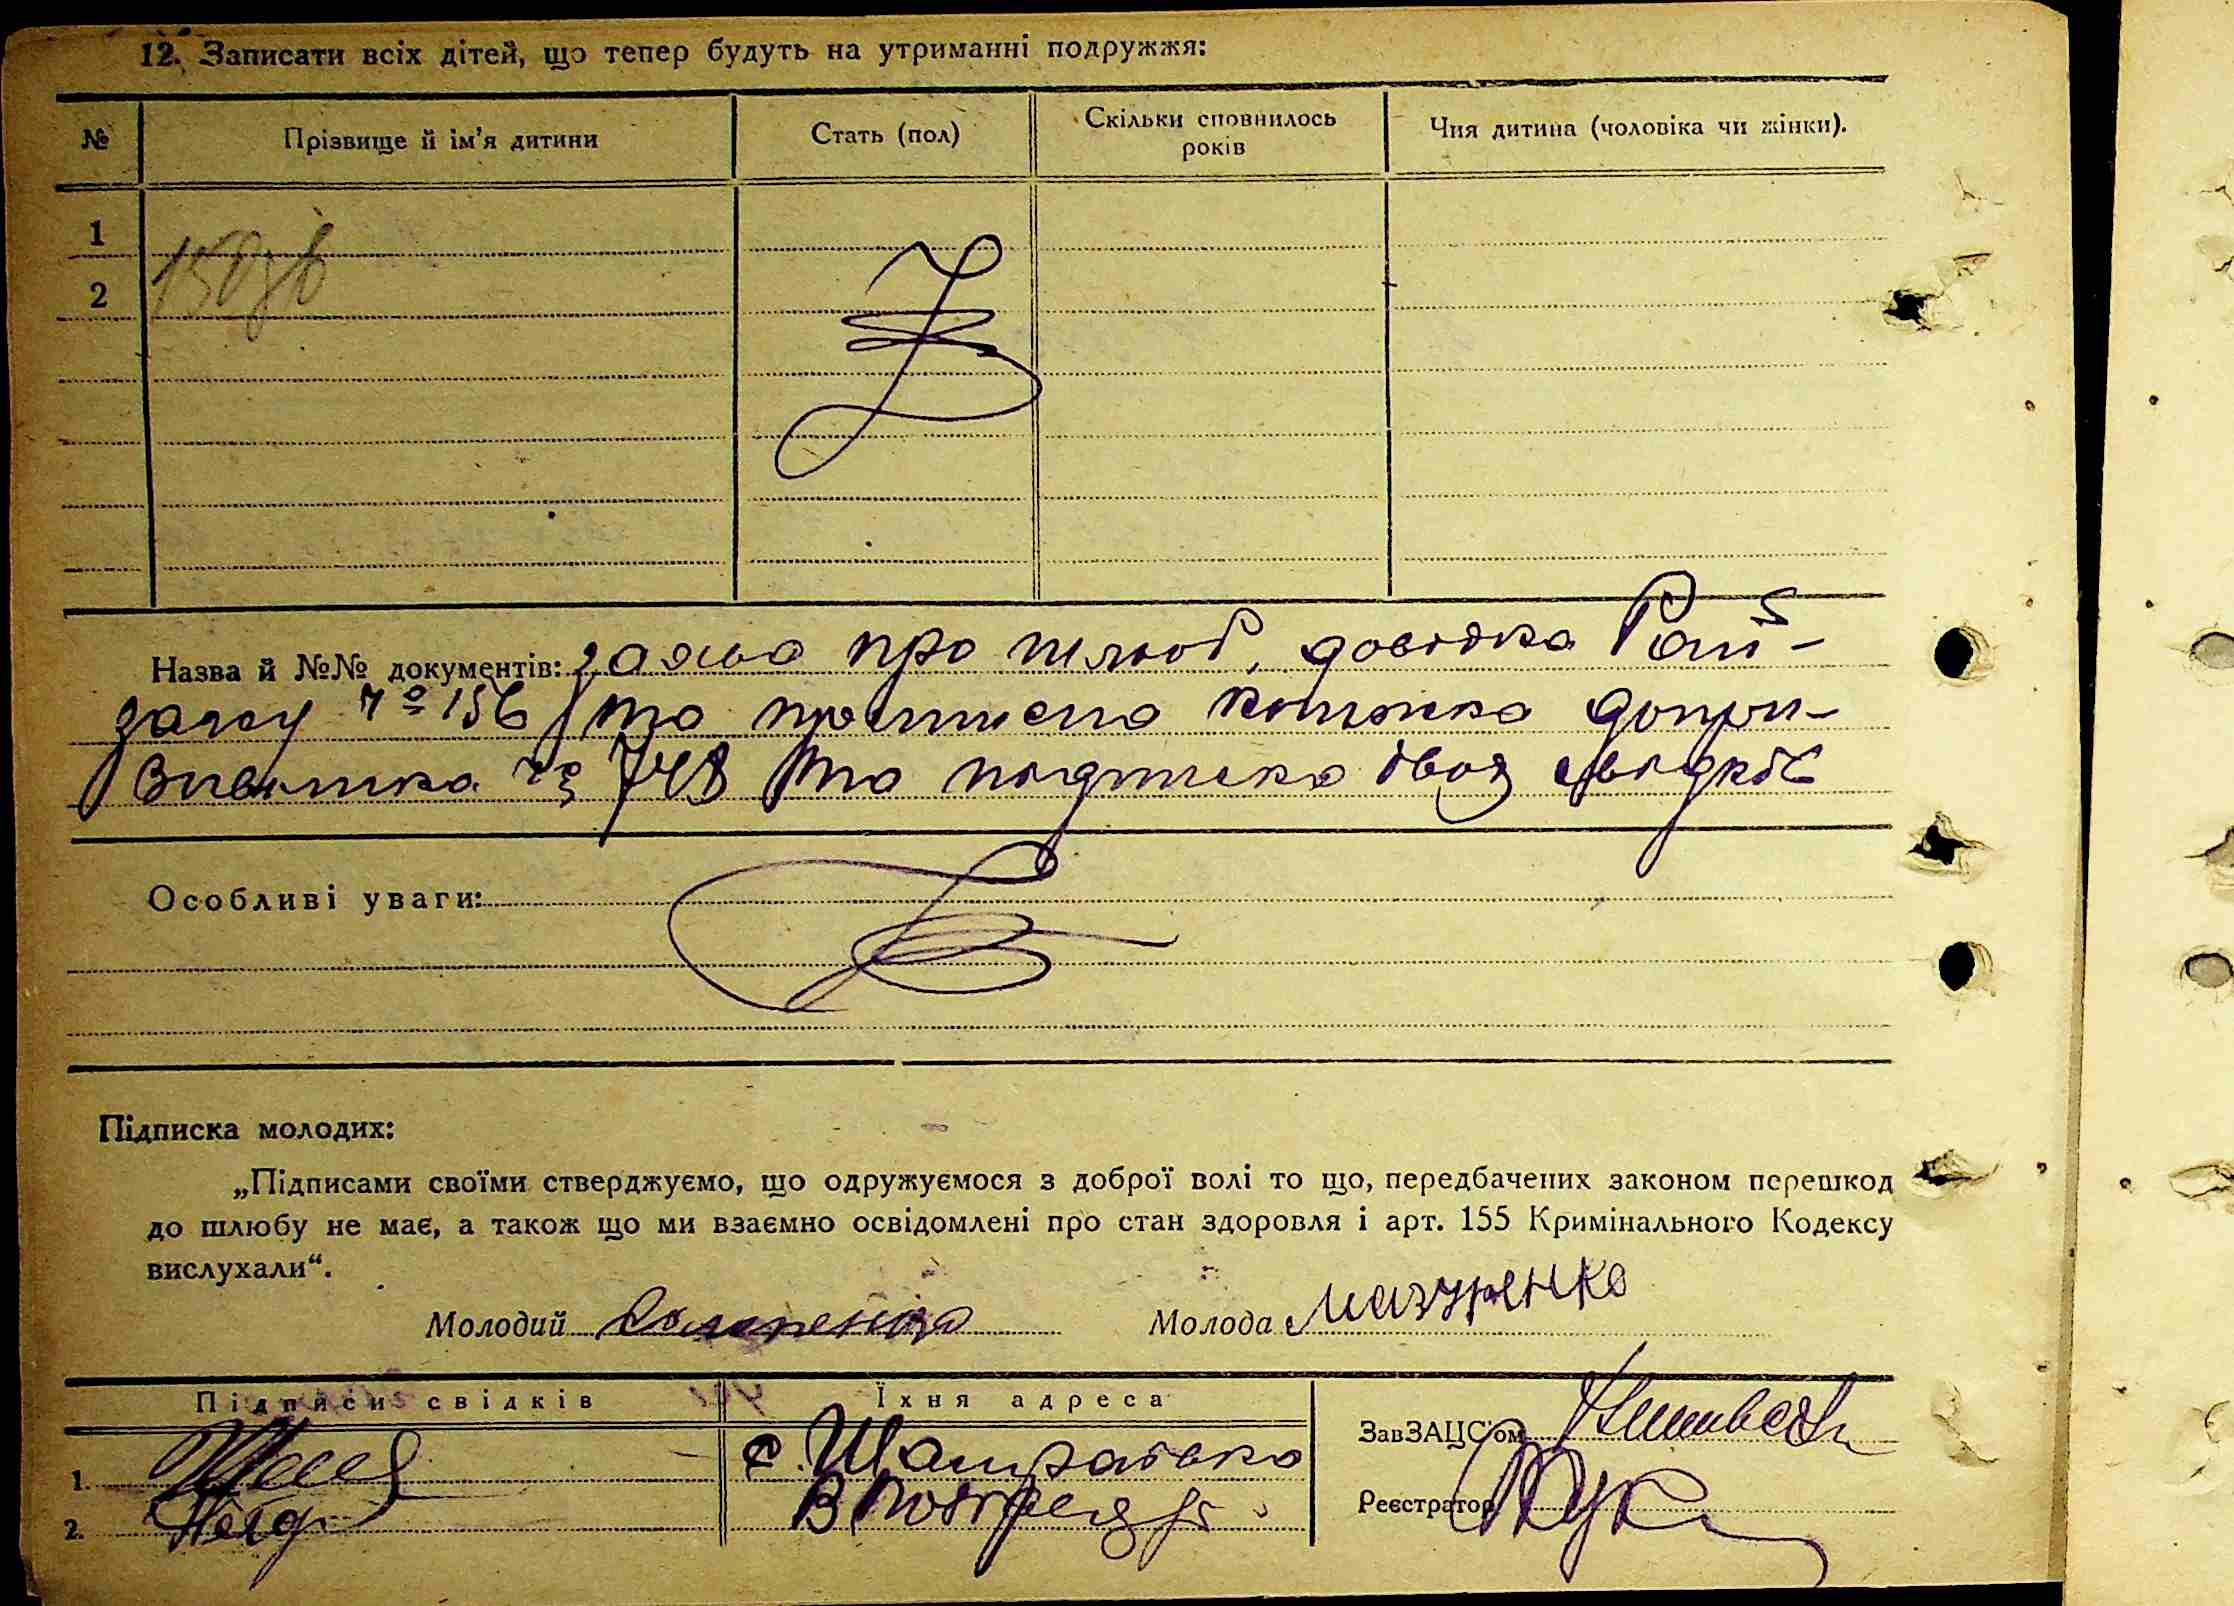 12. Записати всіх дітей, що тепер будуть на утриманні подружжя:
№ Прізвище й ім'я дитини Стать (пол) Скільки сповнилось років Чия дитина (чоловіка чи жінки).
1
2
Назва й №№ документів: заява про шлюб, довідка Рай-
загсу № 156 та приписна книжка допри-
зивника № 748 та підписка двох свідків
Особливі уваги:
Підписка молодих:
„Підписами своїми стверджуємо, що одружуємося з доброї волі то що, передбачених законом перешкод
до шлюбу не має, а також що ми взаємно освідомлені про стан здоровля і арт. 155 Кримінального Кодексу
вислухали“.
Молодий Молода Мазуренко
Підписи свідків Їхня адреса
ЗавЗАЦС'ом
1. с.
2.
Реєстратор